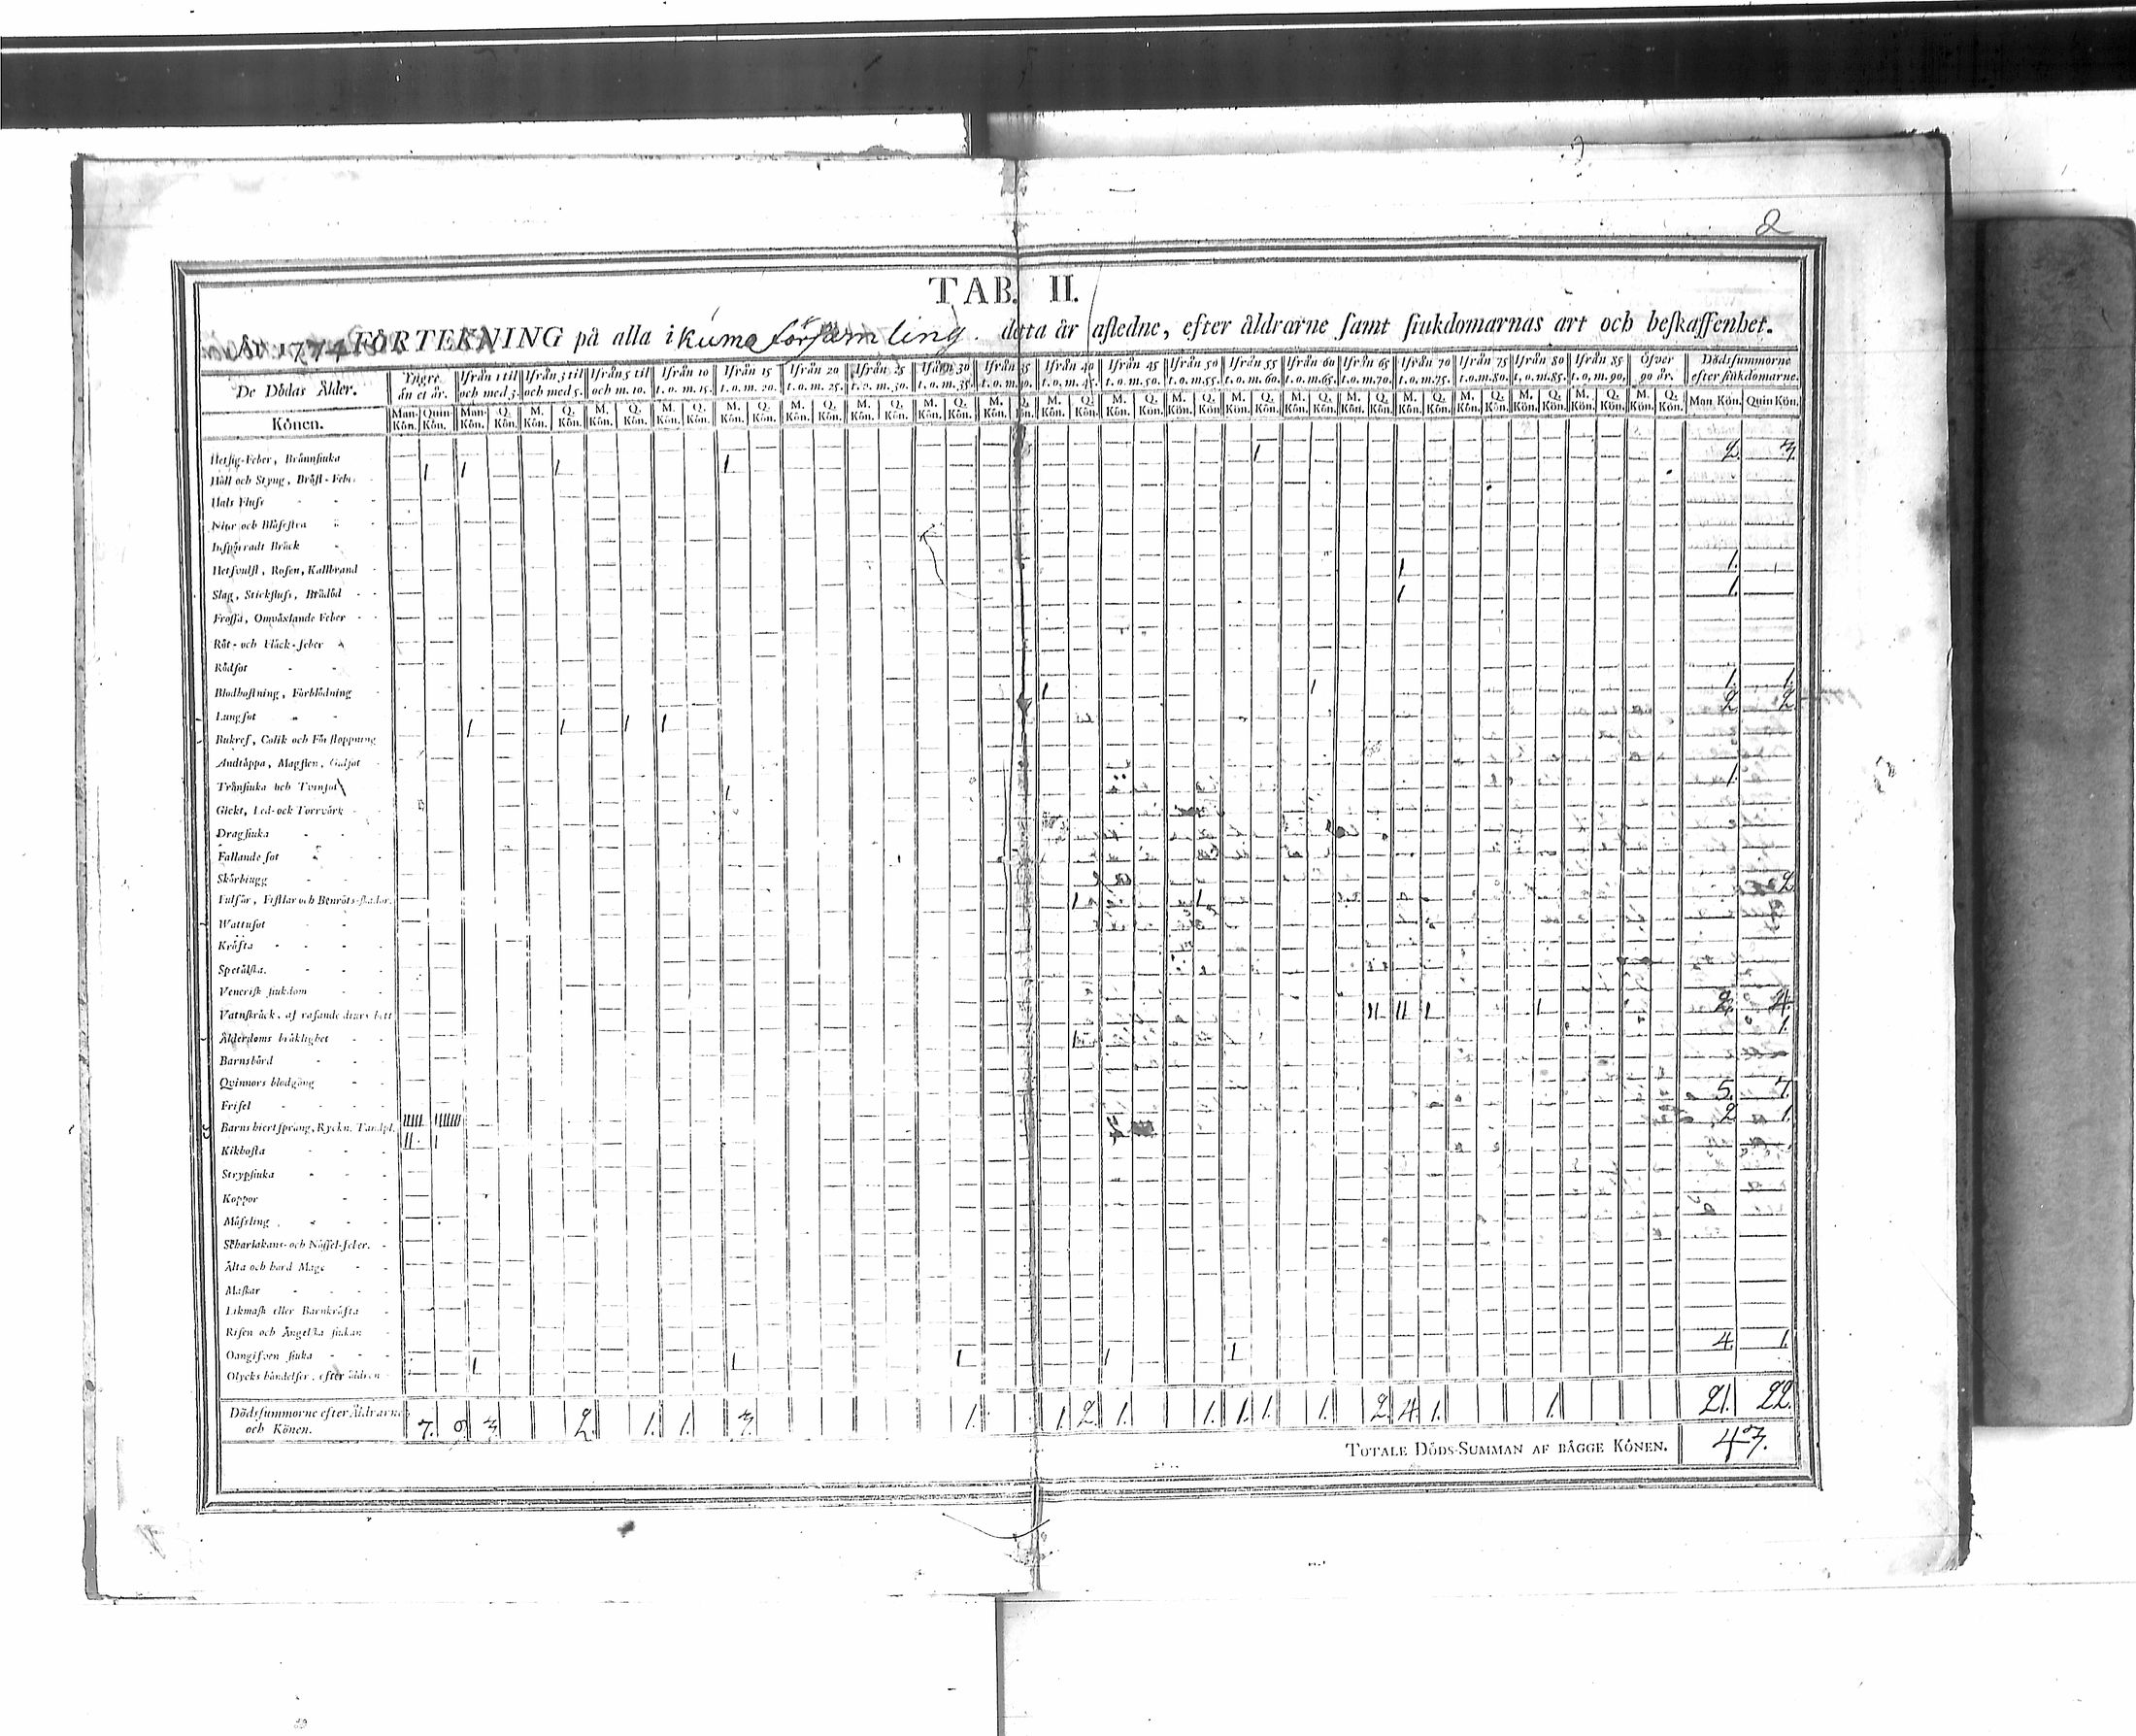 2
TAB. II.
År 1774 FÖRTEKNING på alla i kumo församling detta år afledne, efter åldrarne samt siukdomarnas art och beskaffenhet.
De Dödas Ålder. Yngre än et år. Ifrån 1 til och med 3. Ifrån 3 til och med 5. Ifrån 5 til och m. 10. Ifrån 10 t. o. m. 15. Ifrån 15 t. o. m. 20. Ifrån 20 t. o. m. 25. Ifrån 25 t. o. m. 30. Ifrån 30 t. o. m. 35. Ifrån 35 t. o. m. 40. Ifrån 40 t. o. m. 45. Ifrån 45 t. o. m. 50. Ifrån 50 t. o. m. 55. Ifrån 55 t. o. m. 60. Ifrån 60 t. o. m. 65. Ifrån 65 t. o. m. 70. Ifrån 70 t. o. m. 75. Ifrån 75 t. o. m. 80. Ifrån 80 t. o. m. 85. Ifrån 85 t. o. m. 90. Öfver 90 år. Dödssummorne efter siukdomarne.
Könen. Man. Kön. Quin Kön. Man. Kön. Q. Kön. M. Kön. Q. Kön. M. Kön. Q. Kön. M. Kön. Q. Kön. M. Kön. Q. Kön. M. Kön. Q. Kön. M. Kön. Q. Kön. M. Kön. Q. Kön. M. Kön. Q. Kön. M. Kön. Q. Kön. M. Kön. Q. Kön. M. Kön. Q. Kön. M. Kön. Q. Kön. M. Kön. Q. Kön. M. Kön. Q. Kön. M. Kön. Q. Kön. M. Kön. Q. Kön. M. Kön. Q. Kön. M. Kön. Q. Kön. M. Kön. Q. Kön. Man. Kön. Quin Kön.
Hetsig-Feber, Brånnsiuka
Håll och Styng, Bröst-Feber 1 1 1 1 1 2. 3.
Hals Fluss
Niur och Blåsestra
Inspärradt Bräck
Hetsvulst, Rosen, Kallbrand
Slag, Stickfluss, Brådöd 1 1.
Frossa, Omväxlande Feber 1 1.
Röt- och Fläck-feber
Rödsot
Blodhostning, Förblödning
Lungsot 1 1 1. 1.
Bukref, Colik och Förstoppning 1 1 1 1 2 2
Andtäppa, Magsten, Gulsot
Trånsiuka och Tvinsot
Gickt, Led- och Torrvärk 1 1.
Dragsiuka
Fallande sot
Skörbiugg
Fulsår, Fistlar och Benröts-skador.
Wattusot 1 1 2
Kräfta
Spetälska.
Venerisk siukdom
Vatnskräck, af rasande diurs bett
Ålderdoms bräklighet 11 11 1 1 2. 4.
Barnsbörd 1 1.
Qvinnors blodgång
Frisel
Barns hiertsprång, Ryckn. Tandpl. 5. 7.
Kikhosta 11 1 2 1.
Strypsiuka
Koppor
Mässling
Scharlakans- och Nässel-feber.
Älta och hård Mage
Maskar
Likmask eller Barnkräfta
Risen och Ängelska siukan
Oangifven siuka
Olycks händelser, efter sidran 1 1 1 1 1 4. 1.
Dödssummorne efter Åldrarne och Könen. 7. 9. 3. 2. 1. 1. 3. 1. 1. 2. 1. 1. 1. 1. 1. 2. 4. 1. 1. 21. 22.
TOTALE DÖDS-SUMMAN AF BÄGGE KÖNEN. 43.